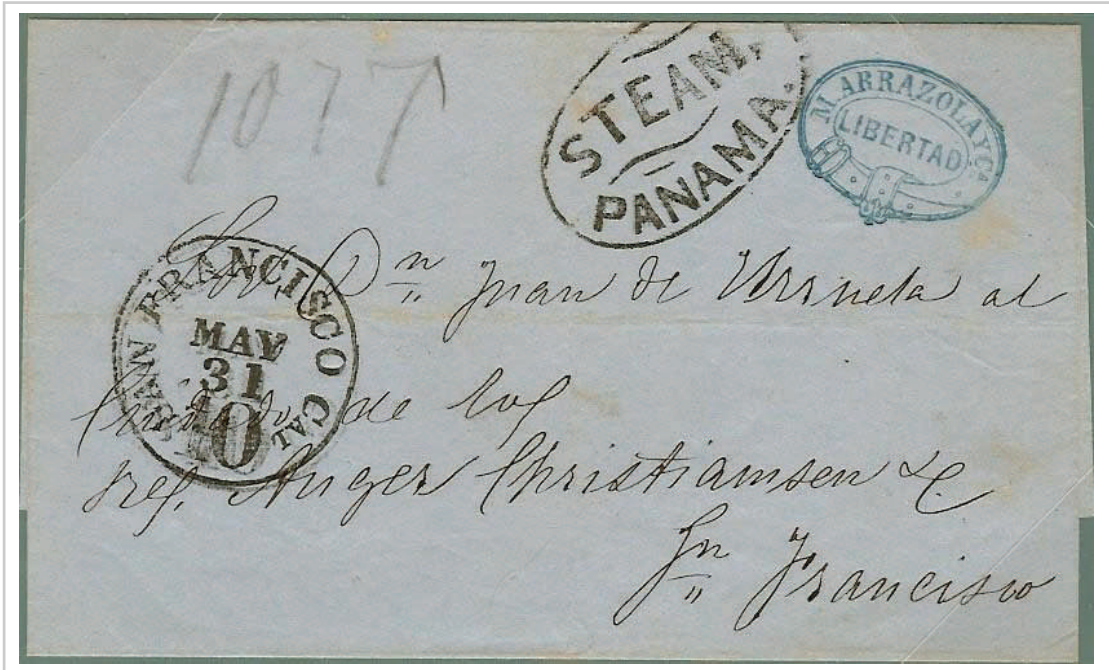 1077
STEAM,
PANAMA.
M. ARRAZOLA Y Ca
LIBERTAD
SAN FRANCISCO CAL
MAY
31
10
Sor. Dn Juan de Urruela al
Cuidado de los
Sres. Anger Christiamsen &
Sn Francisco